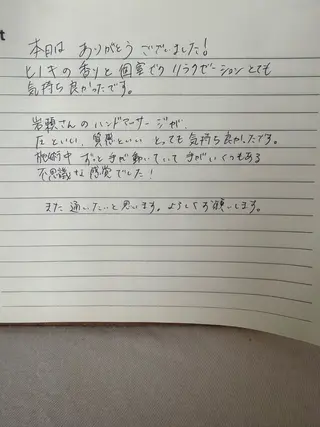 t
本日は ありがとう ございました!
ヒノキの香りと個室でのリラクゼーションとても
気持ち良かったです。
岩瀬さんのハンドマッサージが、
圧といい、質感といい とっても気持ち良かったです。
施術中 ずっと手が動いていて 手がいくつもある
不思議な感覚でした!
また 通いたいと思います。よろしくお願いします。